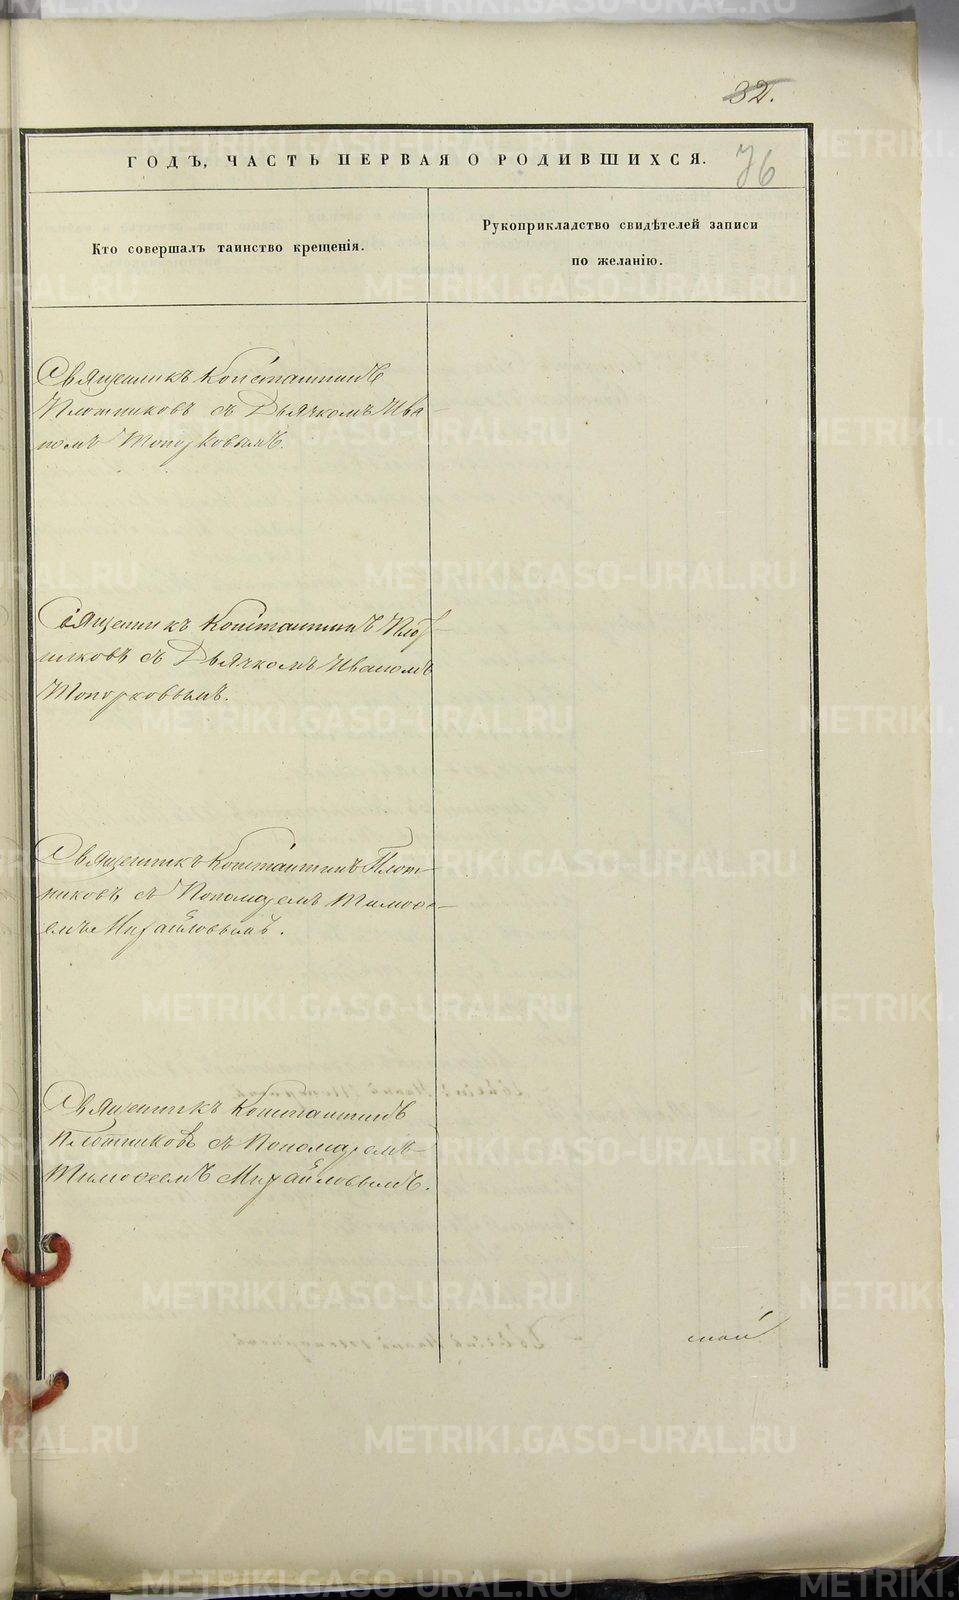 32.
ГОДЪ, ЧАСТЬ ПЕРВАЯ О РОДИВШИХСЯ.
76
Кто совершалъ таинство крещенія.
Рукоприкладство свидѣтелей записи
по желанію.
Священникъ Константинъ
Плотниковъ съ Дьячкомъ Ива-
номъ Топорковымъ.
Священникъ Константинъ Плот-
никовъ съ Дьячкомъ Иваномъ
Топорковымъ.
Священникъ Константинъ Плот-
никовъ, съ Пономаремъ Тимоѳе-
емъ Михайловымъ.
Священникъ Константинъ
Плотниковъ съ Пономаремъ
Тимоѳеемъ Михайловымъ.
METRIKI.GASO-URAL.RU